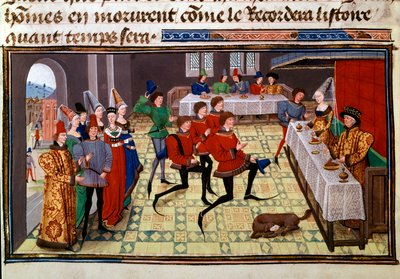 ipnes en morurent cõme le Recordera listoire
quant temps sera